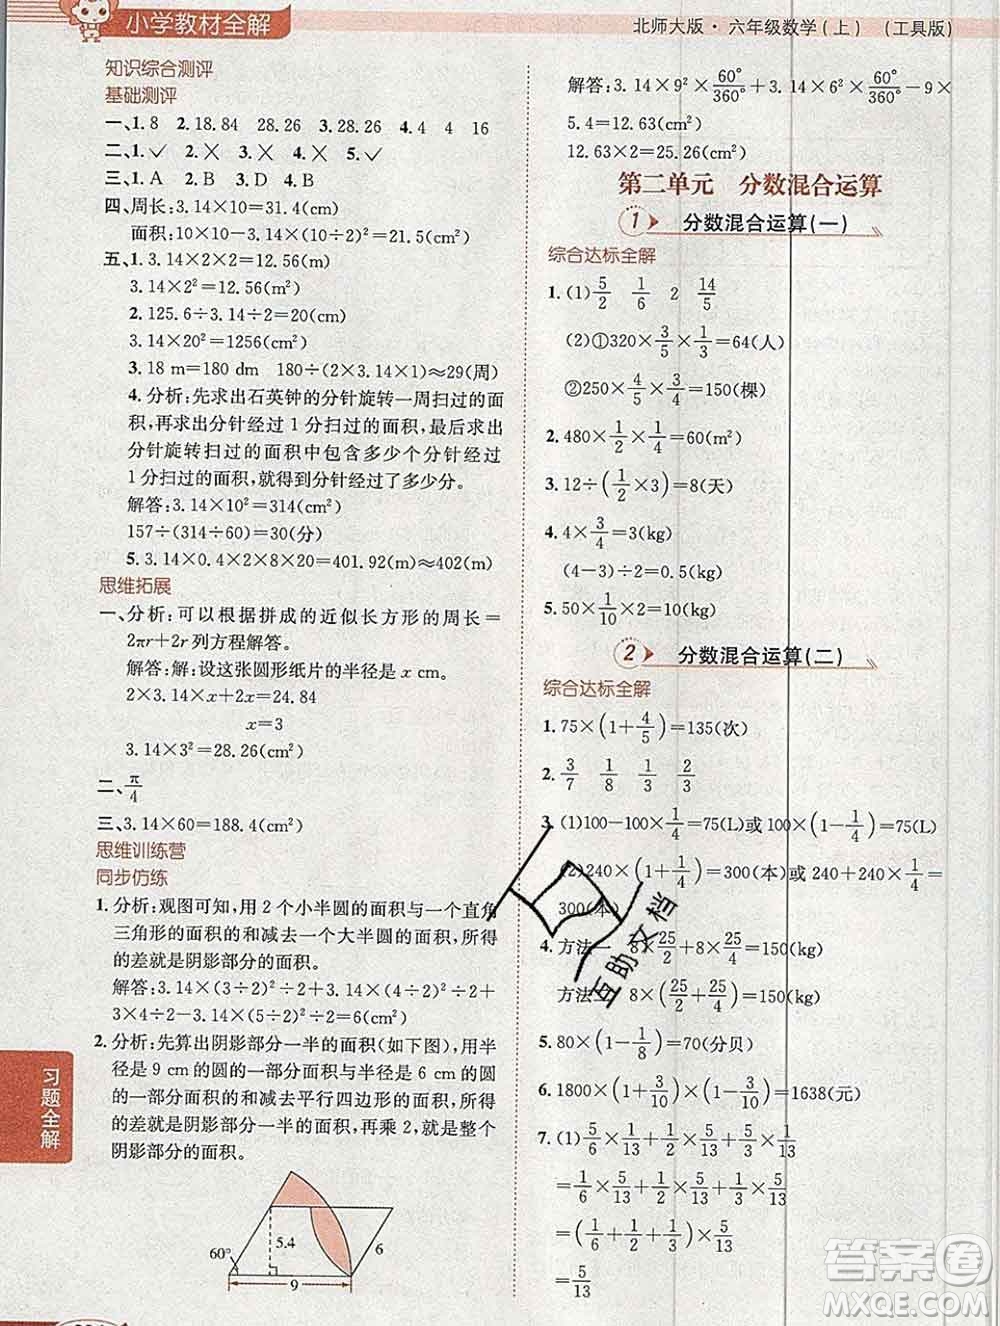 小学教材全解
北师大版·六年级数学(上) (工具版)
知识综合测评
基础测评
一、1.8 2.18.84 28.26 3.28.26 4.4 4 16
二、1.✓ 2.✕ 3.✕ 4.✕ 5.✓
三、1.A 2.B 3.D 4.B
四、周长:3.14×10=31.4(cm)
面积:10×10÷2-3.14×(10÷2)²÷
五、1.3.14×2×2=12.56(m)
3.14×2²=12.56(m²)
2.125.6÷3.14÷2=20(cm)
3.14×20²=1256(cm²)
3.18 m=180 dm 180÷(2×3.14×1)≈29(周)
4.分析:先求出石英钟的分针旋转一周扫过的面
积,再求出分针经过1分扫过的面积,最后用
分针旋转扫过的面积中包含多少个分针经过
1分扫过的面积,就得到分针经过了多少分。
解答:3.14×10²=314(cm²)
157÷(314÷60)=30(分)
5.3.14×0.4×2×8×20=401.92(m)≈402(m)
思维拓展
一、分析:可以根据拼成的近似长方形的周长=
2πr+2r列方程解答。
解答:解:设这张圆形纸片的半径是x cm。
2×3.14×x+2x=24.84
x=3
3.14×3²=28.26(cm²)
二、π/4
三、3.14×60=188.4(cm²)
思维训练营
同步仿练
1.分析:观图可知,用2个小半圆的面积与一个直角
三角形的面积的和减去一个大半圆的面积,所得
的差就是阴影部分的面积。
解答:3.14×(3÷2)²÷2+3.14×(4÷2)²÷2+
3×4÷2-3.14×(5÷2)²÷2=6(cm²)
2.分析:先算出阴影部分一半的面积(如下图),用半
径是9 cm的圆的一部分面积与半径是6 cm的圆
的一部分面积的和减去平行四边形的面积,所得
的差就是阴影部分一半的面积,再乘2,就是整个
阴影部分的面积。
60°
5.4
6
9
习题全解
解答:3.14×9²×60°/360°+3.14×6²×60°/360°-9×
5.4=12.63(cm²)
12.63×2=25.26(cm²)
第二单元 分数混合运算
1 分数混合运算(一)
综合达标全解
1.(1)5/2 1/6 2 14/5
(2)①320×3/5×1/3=64(人)
②250×4/5×3/4=150(棵)
2.480×1/2×1/4=60(m²)
3.12÷(1/2×3)=8(天)
4.4×3/4=3(kg)
(4-3)÷2=0.5(kg)
5.50×1/10×2=10(kg)
2 分数混合运算(二)
综合达标全解
1.75×(1+4/5)=135(次)
2.3/7 1/8 1/3 2/3
3.(1)100-100×1/4=75(L)或100×(1-1/4)=75(L)
(2)240×(1+1/4)=300(本)或240+240×1/4=
300(本)
4.方法一 8×25/2+8×25/4=150(kg)
方法二 8×(25/2+25/4)=150(kg)
5.80×(1-1/8)=70(分贝)
6.1800×(1+3/10)×(1-3/10)=1638(元)
7.(1)5/6×1/13+1/2×5/13+2/9×5/13
=1/6×5/13+1/2×5/13+2/9×5/13
=5/13
互助文档
答案圈
MXQE.COM